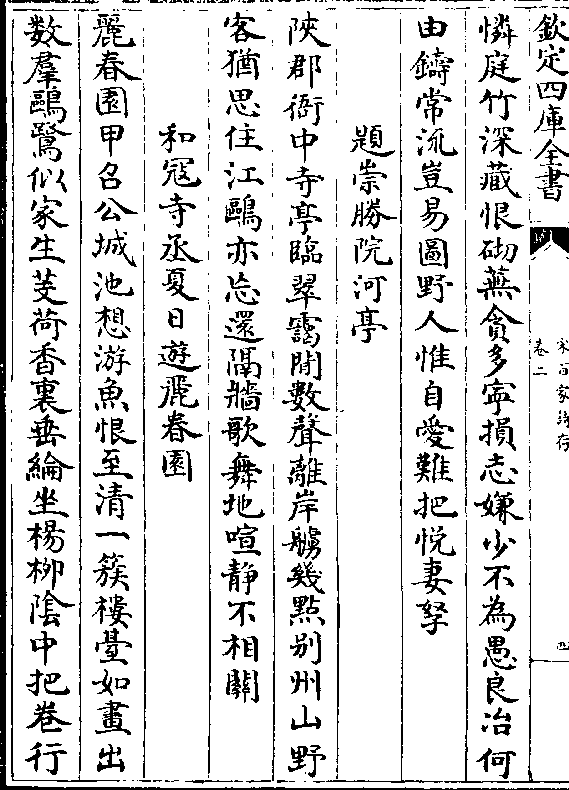 欽定四庫全書
宋百家詩存
卷二
四
憐庭竹深藏恨砌蕪貪多寧損志嫌少不為愚良冶何
由鑄常流豈易圖野人惟自愛難把悅妻孥
題崇勝院河亭
陜郡衙中寺亭臨翠靄間數聲離岸艣幾點别州山野
客猶思住江鷗亦忘還隔牆歌舞地喧静不相關
和寇寺丞夏日遊麗春園
麗春園甲召公城池想游魚恨至清一簇樓臺如畫出
數羣鷗鷺似家生芰荷香裏垂綸坐楊柳陰中把卷行